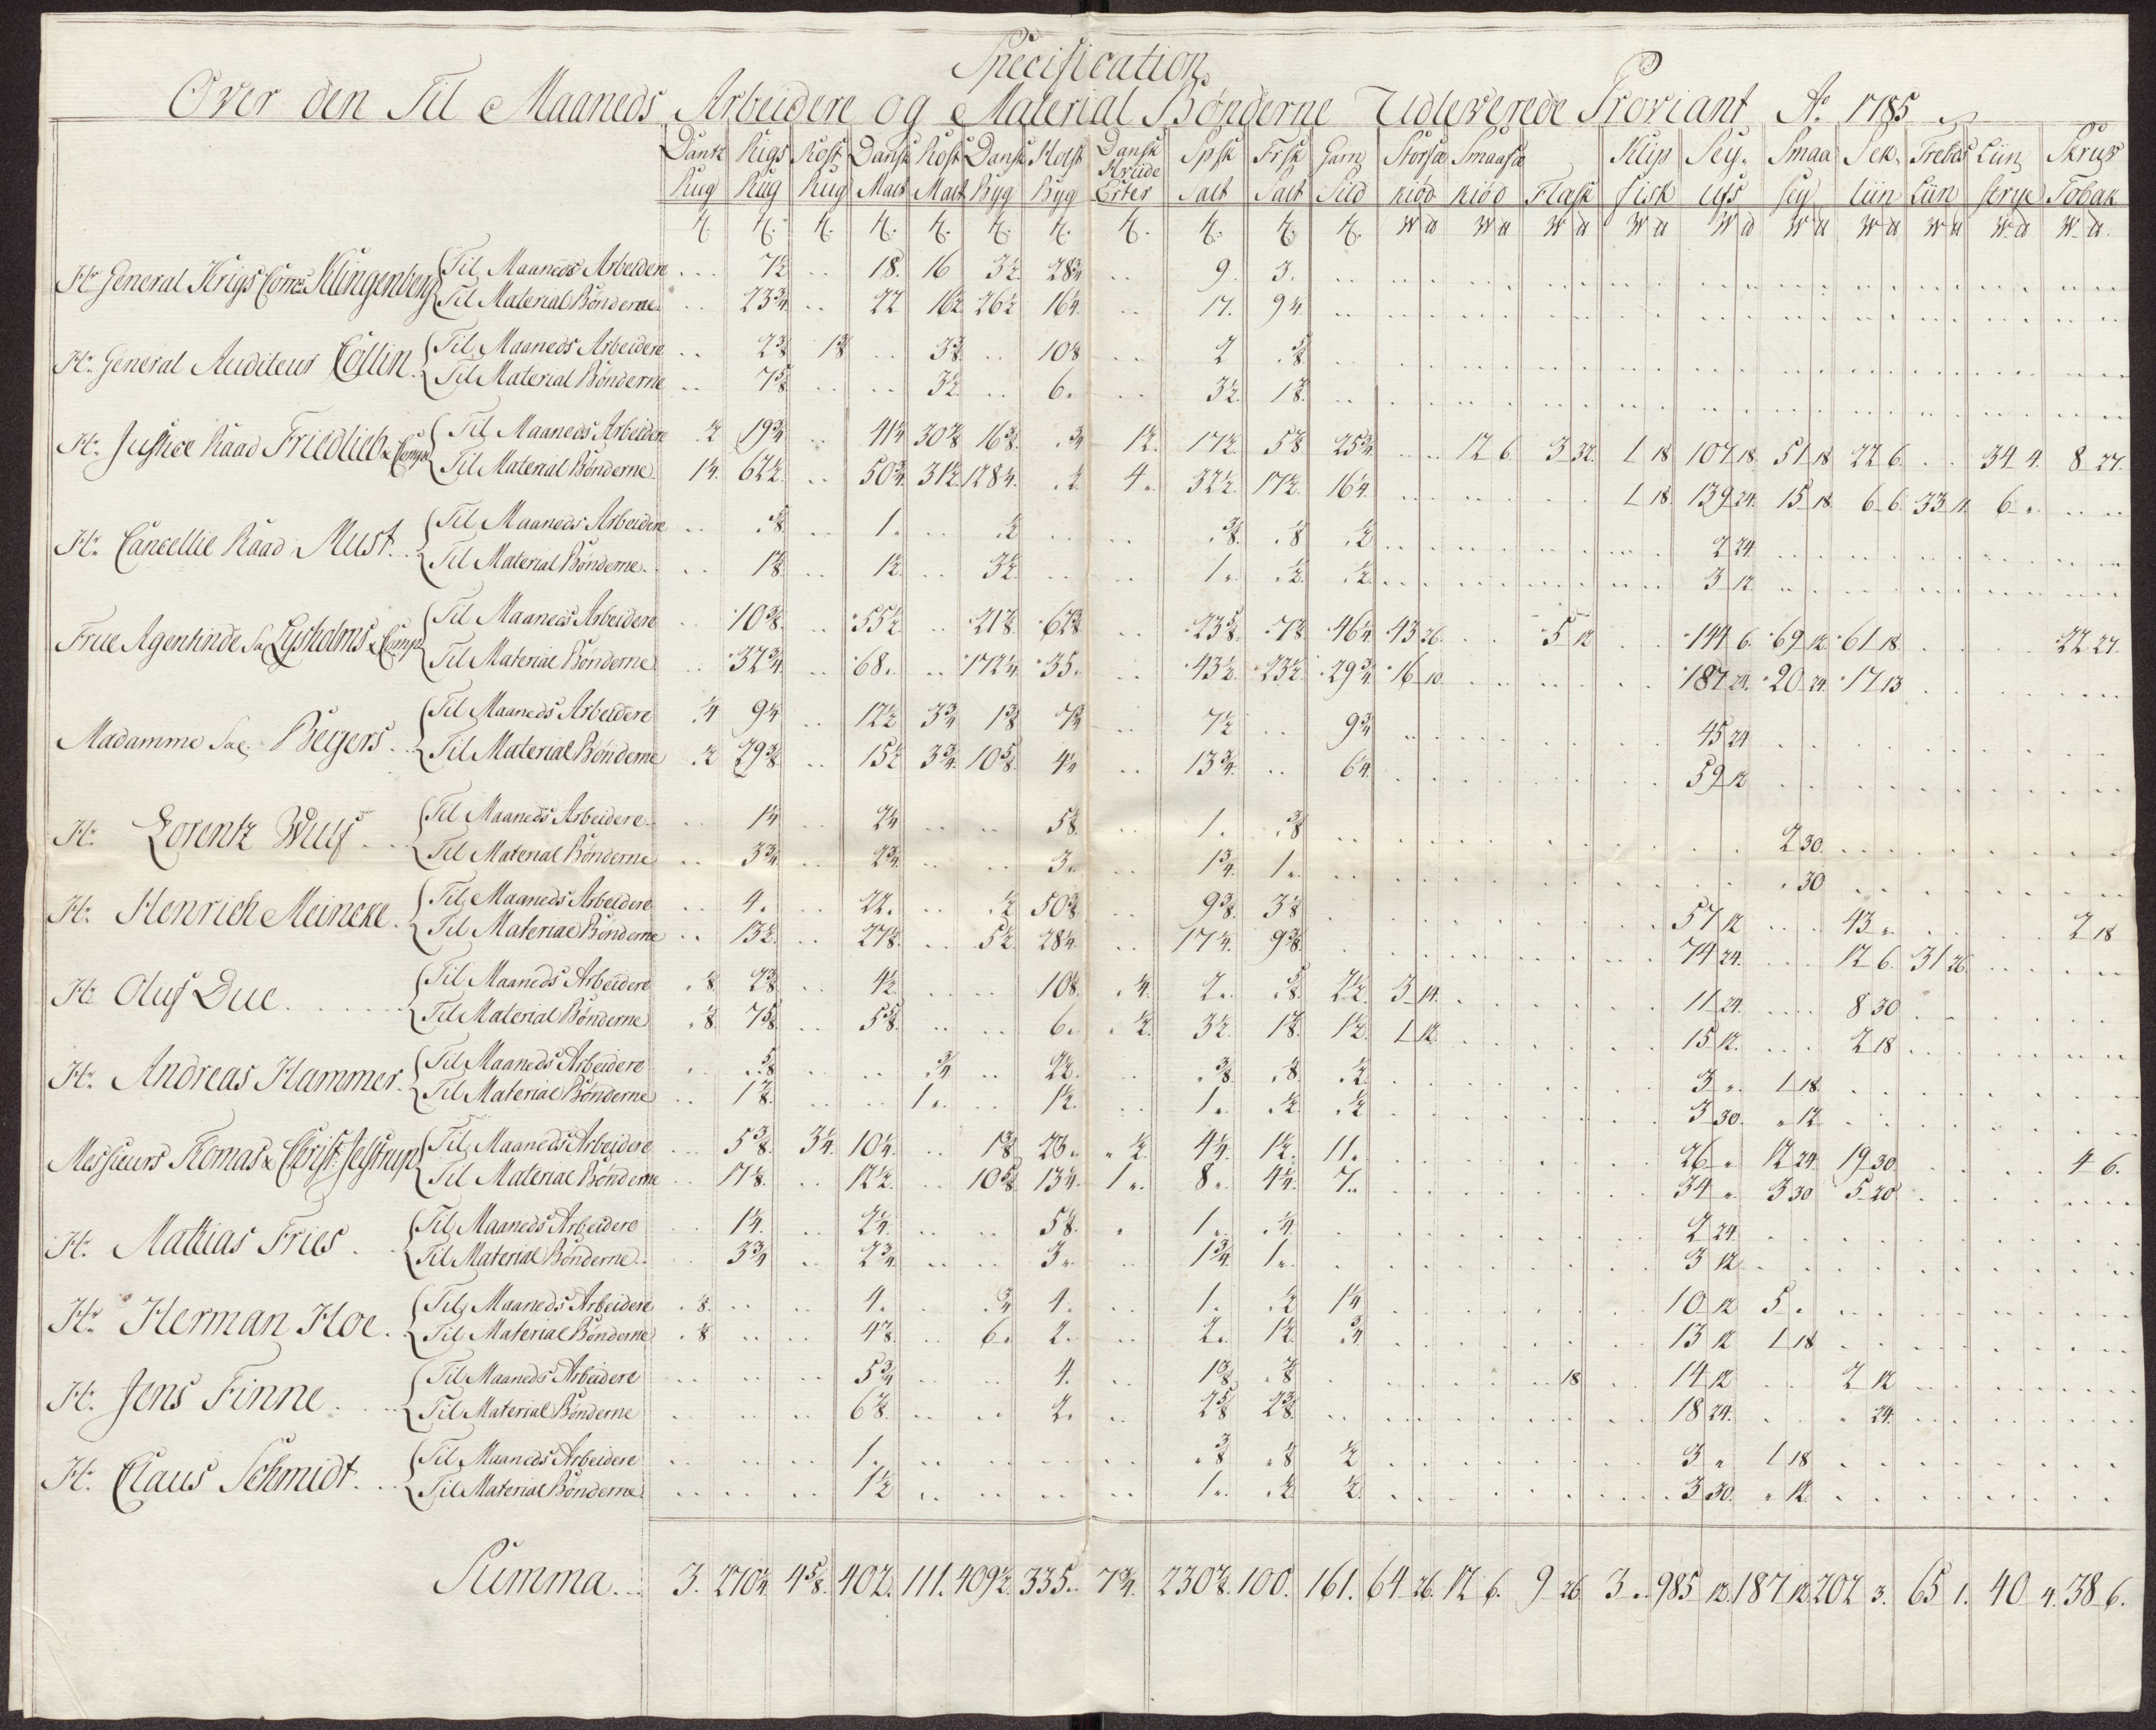 Specification
Over den Til Maaneds Arbeidere og Material Bønderne Udleverede Proviant Ao. 1785
Dantz Rigs Rost Dansk Rost Dansk Holst Dansk Spsk Frsk Garn Storsa Smaasa Klip Sey. Smaa Sek. Trebas Liin Skruv
Rug Rug Rug Malt Malt Byg Byg Hvide Erter Salt Salt Sild kiød kiød Flæsk fisk Uts Sey liin Liin strye Tobak
Hr General Krigs Comr. Klingenberg Til Maaneds Arbeidere 7½ 18. 16 3½ 28¾ 9. 3.
Til Material Bønderne 23¾ 22 16½ 26½ 16¼ 17. 9¼
Hr. General Auditeur Collin. Til Maaneds Arbeidere 2⅜ 1⅜ 3⅜ 10⅛ 2 ⅝
Til Material Bønderne 7⅝ 3½ 6. 3½ 1⅞
Hr. Justice Raad Friedlieb & Comp. Til Maaneds Arbeidere ½ 19¾ 41¼ 30⅞ 16⅜ ¾ 1½. 17½ 5⅞ 25¾ 12 6 3 32. 1 18 107 18. 51 18 22 6. 34 4. 8 27.
Til Material Bønderne 1¼. 62½ 50¾ 31½ 128¼. ½ 4. 32½ 17½ 16¼ 1 18. 139 24. 15 18 6 6. 33 11. 6 "
Hr. Cancellie Raad Must. Til Maaneds Arbeidere ⅝ 1. ½ ⅜ ⅛ ½ 2 24.
Til Material Bønderne 1⅞ 1½ 3½ 1. ½ ½ 3 12.
Frue Agentinde Sa. Lysholms & Comp. Til Maaneds Arbeidere 10⅜ 55½ 21⅞ 62⅜ 23⅝ 7⅞ 46¼ 43 26. 5 12 144 6. 69 12. 61 18. 22 27.
Til Material Bønderne 32¾ 68. 172¼ 35. 43½ 23½ 29¾ 16 10. 187 24. 20 24. 17 13
Madamme Sal. Beyers. Til Maaneds Arbeidere ¼ 9¼ 12½ 3¾ 1⅜ 7¾ 7½ 9¾ 45 24
Til Material Bønderne ½ 29⅜ 15½ 3¾ 10⅝ 4¼ 13¾ 6¼ 59 12
Hr. Lorentz Wulf Til Maaneds Arbeidere 1¼ 2¼ 5⅛ 1. ⅜ 2 30.
Til Material Bønderne 3¾ 2¾ 3. 1¾ 1. 30
Hr. Henrich Meincke. Til Maaneds Arbeidere 4. 22. ½ 50⅜ 9⅜ 3⅛ 57 12 43 " 2 18
Til Material Bønderne 13½ 27⅛ 5½ 28¼ 17¼ 9⅜ 74 24. 12 6. 31 26
Hr Oluf Due Til Maaneds Arbeidere ⅛ 2⅜ 4½ 10⅛ ¼ 2. ⅝ 2½ 3 14. 11 24. 8 30
Til Material Bønderne ⅛ 7⅝ 5⅝ 6. ½ 3½ 1⅞ 1½ 1 12. 15 12. 2 18
Hr. Andreas Hammer. Til Maaneds Arbeidere ⅝ ¾ 2½ ⅜ ⅛ ½ 3 " 1 18.
Til Material Bønderne 1⅞ 1. 1½ 1. ½ ½ 3 30. " 12
Messieurs Tomas & Christ: Jelstrup Til Maaneds Arbeidere 5⅜ 3¼ 10¼ 1⅜ 23. ½ 4¼ 1½ 11. 26 " 12 24. 19 30 4 6.
Til Material Bønderne 17⅛ 12½ 10⅝ 13¼ 1. 8. 4¼ 7. 34 " 3 30 5 20
Hr. Mattias Fries Til Maaneds Arbeidere 1¼ 2¼ 5⅛ 1. ¼ 2 24.
Til Material Bønderne 3¾ 2¾ 3. 1¾ 1. 3 12
Hr. Herman Hoe. Til Maaneds Arbeidere ⅛ 4. ¾ 4. 1. ½ 1¼ 10 12 5 .
Til Material Bønderne ⅛ 4⅞ 6. 2. 2. 1½ ¾ 13 12 1 18
Hr. Jens Finne Til Maaneds Arbeidere 5¾ 4. 1⅜ ⅞ 18 14 12 2 12
Til Material Bønderne 6⅞ 2. 2⅝ 2⅜ 18 24. 24.
Hr. Claus Schmidt. Til Maaneds Arbeidere 1. ⅜ ⅛ ½ 3 " 1 18
Til Material Bønderne 1½ 1. ½ ½ 3 30. " 12.
Summa 3. 270¼ 4⅝ 402. 111. 409½ 335. 7¾ 230⅞ 100. 161. 64 26. 12 6. 9 26 3 . 985 12. 187 12 202 3. 65 1. 40 4. 38 6.